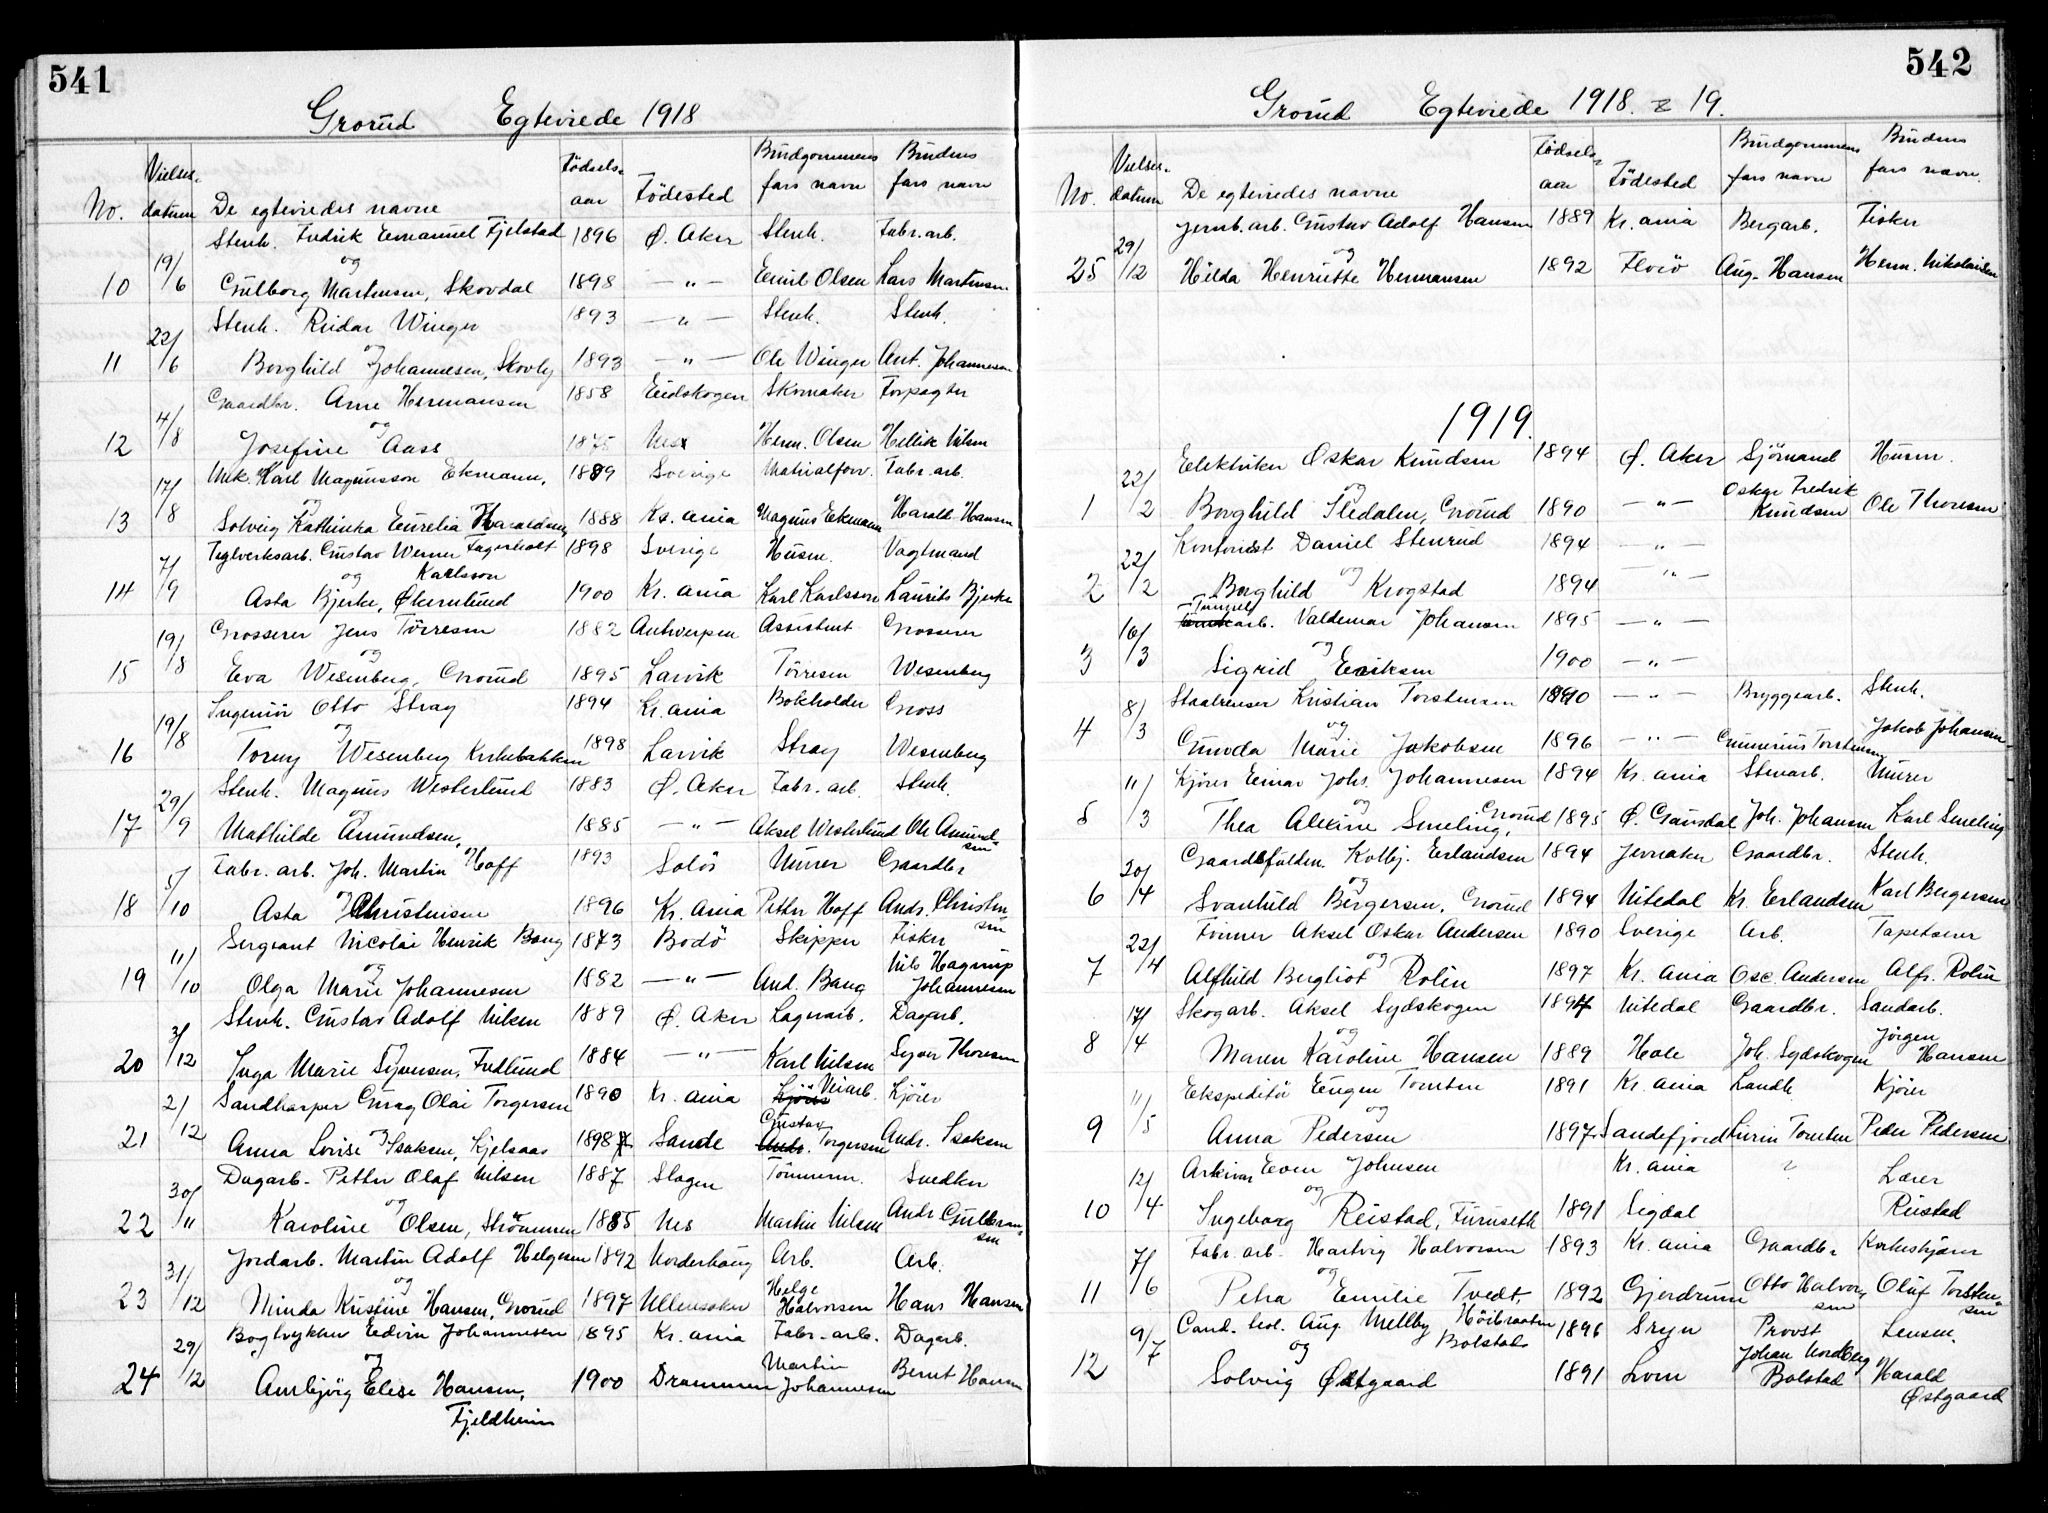 541
Grorud Egteviede 1918
No. Vielses-datum De egteviedes navne Fødsels-aar Fødested Brudgommens fars navn Brudens fars navn
Stenh. Fredrik Emanuel Fjelstad 1896 Ø. Aker Stenh. Fabr. arb.
og
10 19/6 Gulborg Martinsen, Skovdal 1898 — " — Emil Olsen Lars Martinsen
Stenh. Reidar Winger 1893 — " — Stenh. Stenh.
og
11 22/6 Borghild Johannesen, Skovly 1893 — " — Ole Winger Ant. Johannesen
Gaardbr. Arne Hermansen 1858 Eidskogen Skomaker Forpagter
og
12 4/8 Josefine Aass 1875 Nes Herm. Olsen Hellik Nilsen
Mek. Karl Magnusson Ekmann, 1889 Sverige Materialforv. Fabr. arb.
og
13 17/8 Solveig Kathinka Eurelia Haraldsen 1888 Kr. ania Magnus Ekmann Harald Hansen
Teglverksarb. Gustav Werner Fagerholt Karlsson 1898 Sverige Husm. Vagtmand
og
14 7/9 Asta Bjerke, Økernlund 1900 Kr. ania Karl Karlsson Laurits Bjerke
Grosserer Jens Törresen 1882 Antwerpen Assistent Grosserer
og
15 19/8 Eva Wesenberg, Grorud 1895 Larvik Törresen Wesenberg
Ingeniör Otto Stray 1894 Kr. ania Bokholder Gross
og
16 19/8 Torny Wesenberg Kirkebakken 1898 Larvik Stray Wesenberg
Stenh. Magnus Westerlund 1883 Ø. Aker Fabr. arb. Stenh.
og
17 29/9 Mathilde Amundsen, 1885 — " — Aksel Westerlund Ole Amundsen
Fabr. arb. Joh. Martin Hoff 1893 Solör Murer Gaardbr
og
18 5/10 Asta Christensen 1896 Kr. ania Petter Hoff Andr. Christensen
Sergeant Nicolai Henrik Bang 1873 Bodö Skipper Fisker
og
19 11/10 Olga Marie Johannesen 1882 — " — And. Bang Nils Hagrup Johannesen
Stenh. Gustav Adolf Nilsen 1889 Ø. Aker Lagerarb. Dagarb.
og
20 3/12 Inga Marie Syversen, Fredlund 1884 — " — Karl Nilsen Syver Thoresen
Sandharper Georg Olai Torgersen 1890 Kr. ania Kjörer Veiarb. Kjörer
og
21 2/12 Anna Lovise Isaksen, Kjelsaas 1898 Sande Gustav Andr. Torgersen Andr. Isaksen
Dagarb. Petter Olaf Nilsen 1887 Slagen Tömmerm. Snedker
og
22 30/11 Karoline Olsen, Strömmen 1885 Nes Martin Nilsen Andr Gulbransen
Jordarb. Martin Adolf Helgesen 1892 Norderhaug Arb. Arb.
og
23 31/12 Minda Kristine Hansen, Grorud 1897 Ullensaker Helge Halvorsen Hans Hansen
Bogtrykker Edvin Johannesen 1895 Kr. ania Fabr. arb. Dagarb.
og
24 29/12 Annbjörg Elise Hansen, 1900 Drammen Martin Johannesen Bernt Hansen
Fjeldheim
542
Grorud Egteviede 1918. & 19.
No. Vielses-datum De egteviedes navne Fødsels-aar Fødested Brudgommens fars navn Brudens fars navn.
Jernb. arb. Gustav Adolf Hansen 1889 Kr. ania Bergarb. Fisker
og
25 29/12 Hilda Henriette Hermansen 1892 Florö Aug. Hansen Herm. Nikolaisen
1919.
Elektriker Oskar Knudsen 1894 Ø. Aker Sjömand Husm.
og
1 22/2 Borghild Sledalen, Grorud 1890 — " — Oskar Fredrik Knudsen Ole Thoresen
Kontorist Daniel Stenrud 1894 — " —
og
2 22/2 Borghild Krogstad 1894 — " —
Tunnel arb. Valdemar Johansen 1895 — " —
og
3 16/3 Sigrid Eriksen 1900 — " —
Staalrenser Kristian Torstensen 1890 — " — Bryggearb. Stenh.
og
4 8/3 Gunda Marie Jakobsen 1896 — " — Gunnerius Torstensen Jakob Johansen
Kjörer Einar Johs. Johannesen 1894 Kr. ania Stenarb. Murer
og
5 11/3 Thea Alexine Smeling, Grorud 1895 Ø. Gausdal Joh. Johansen Karl Smeling
Gaardsfulden. Kolbj. Erlandsen 1894 Jevnaker Gaardbr. Stenh.
og
6 20/4 Svanhild Bergersen, Grorud 1894 Nitedal Kr. Erlandsen Karl Bergersen
Former Aksel Oskar Andersen 1890 Sverige Arb. Tapetserer
og
7 22/4 Alfhild Bergliot Rolin 1897 Kr. ania Osc. Andersen Alfr. Rolin
Skogarb. Aksel Sydskogen 1894 Nitedal Gaardbr. Sandarb.
og
8 17/4 Maren Karoline Hansen 1889 Hole Joh. Sydskogen Jörgen Hansen
Ekspeditör Eugen Tomten 1891 Kr. ania Landh. Kjörer
og
9 11/5 Anna Pedersen 1897 Sandefjord Tomten Peder Pedersen
Arkivar Even Johnsen Kr. ania ? Lærer
og
10 12/4 Ingeborg Reistad, Furuseth 1891 Sigdal Reistad
Fabr. arb. Hartvig Halvorsen 1893 Kr. ania Gaardbr Kirketjener
og
11 7/6 Petra Emilie Tvedt, 1892 Gjerdrum Otto Halvorsen Oluf Torstensen
Cand. teol. Aug. Mellby Höibraaten Bolstad 1896 Stryn Provst Lensm.
og
12 9/7 Solveig Østgaard 1891 Lom Johan Nordberg Bolstad Harald Østgaard